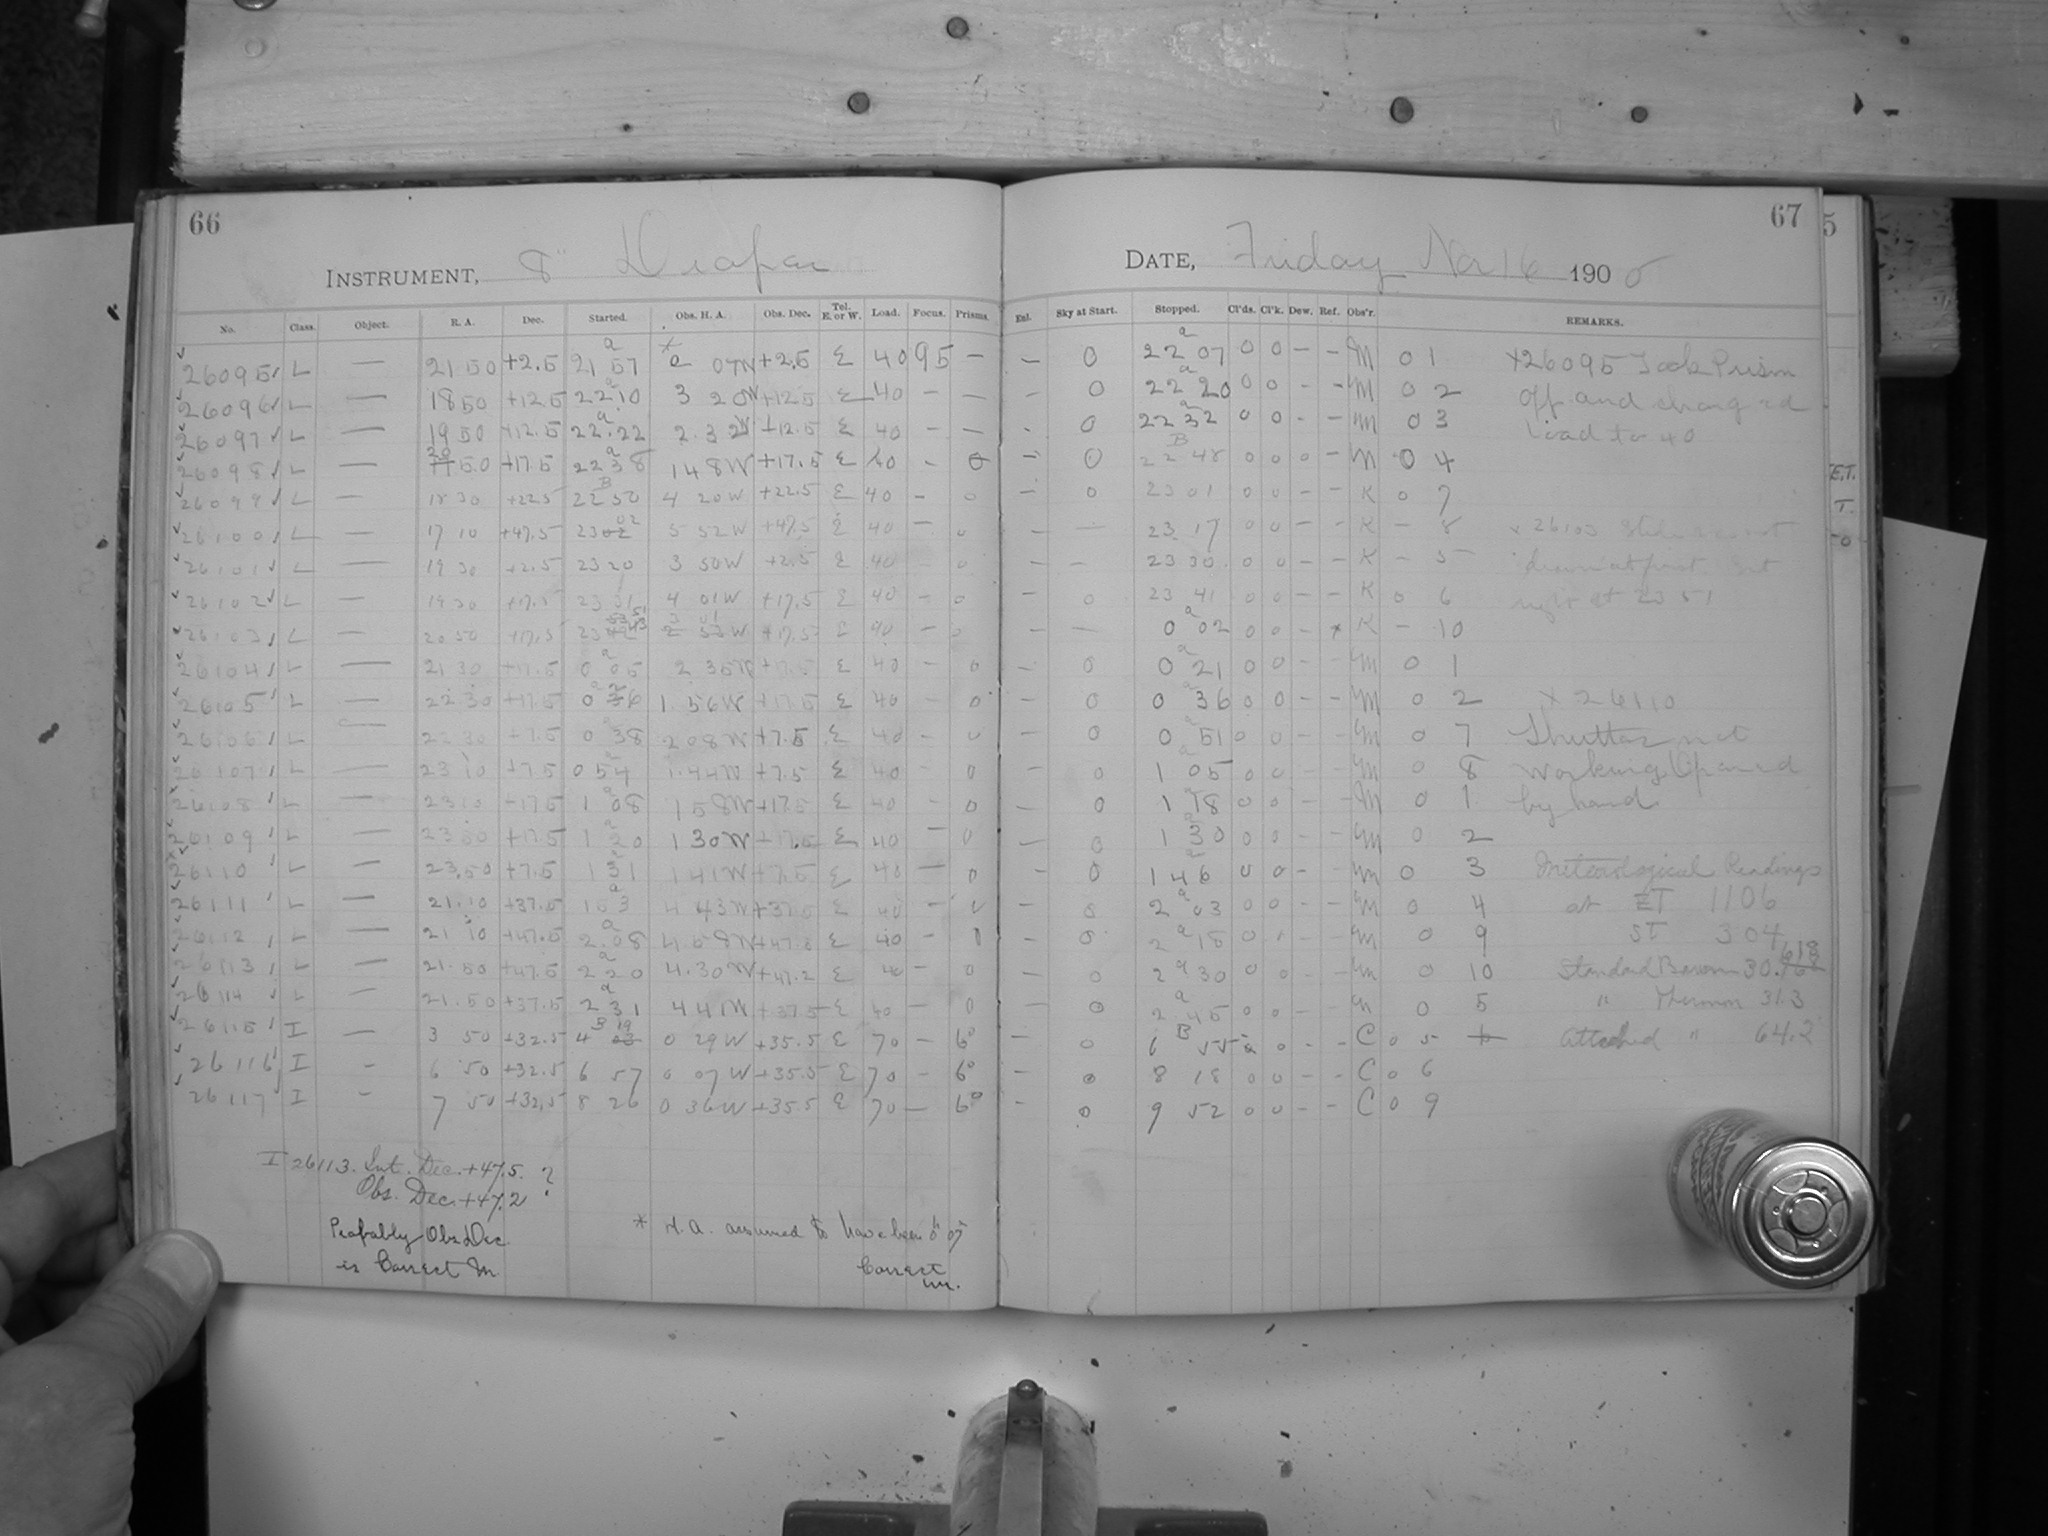 66
INSTRUMENT, 8" Draper
No. Class. Object. R. A. Dec. Started. Obs. H. A. Obs. Dec. Tel. E. or W. Load. Focus. Prisms.
26095 L — 21 50 +2.5 21 57 0 07W +2.5 E 40 95 —
26096 L — 18 50 +12.5 22 10 3 20W +12.5 E 40 — —
26097 L — 19 50 +12.5 22.22 2.32W +12.5 E 40 — —
26098 L — 20 50 +17.5 22 38 1 48W +17.5 E 40 — 0
26099 L — 18 30 +22.5 22 50 4 20W +22.5 E 40 — 0
26100 L — 17 10 +47.5 23 02 5 52W +47.5 E 40 — 0
26101 L — 19 30 +2.5 23 20 3 50W +2.5 E 40 — 0
26102 L — 19 30 +17.5 23 31 4 01W +17.5 E 40 — 0
26103 L — 20 50 +17.5 23 +17.5 E 40 — 0
26104 L — 21 30 +17.5 0 05 2 35W +17.5 E 40 — 0
26105 L — 22 30 +17.5 0 26 1.56W +17.5 E 40 — 0
26106 L — 22 30 +7.5 0 38 2 08W +7.5 E 40 — 0
26107 L — 23 10 +7.5 0 54 1.44W +7.5 E 40 — 0
26108 L — 23 10 +17.5 1 08 1 58W +17.5 E 40 — 0
26109 L — 23 50 +17.5 1 20 1 30W +17.5 E 40 — 0
26110 L — 23.50 +7.5 1 31 1 41W +7.5 E 40 — 0
26111 L — 21.10 +37.5 1 53 4 43W +37.5 E 40 — 0
26112 L — 21 10 +47.5 2.08 4.58W +47.5 E 40 — 0
26113 L — 21.50 +47.5 2 20 4.30W +47.2 E 40 — 0
26114 L — 21.50 +37.5 2 31 4 41W +37.5 E 40 — 0
26115 I — 3 50 +32.5 4 19 0 29W +35.5 E 70 — 6°
26116 I — 6 50 +32.5 6 57 0 07W +35.5 E 70 — 6°
26117 I — 7 50 +32.5 8 26 0 36W +35.5 E 70 — 6°
I 26113. Int. Dec. +47.5. ?
Obs. Dec. +47.2
Probably Obs Dec.
is Correct M.
* H.A. assumed to have been 0h 07
Correct
M.
67
DATE, Friday Nov 16 1900
Enl. Sky at Start. Stopped. Cl'ds. Cl'k. Dew. Ref. Obs'r. REMARKS.
— 0 22 07 0 0 — — M 0 1 x26095 Took Prism
— 0 22 20 0 0 — — M 0 2 off and changed
- 0 22 32 0 0 — — M 0 3 Load to 40
— 0 22 48 0 0 0 — M 0 4
— 0 23 01 0 0 — — K 0 7
— — 23 17 0 0 — — K — 8 x 26103 Slide not
— — 23 30 0 0 — — K — 5 drawn at first. Set
— 0 23 41 0 0 — — K 0 6 right at 23 51
— — 0 02 0 0 — * K — 10
— 0 0 21 0 0 — — M 0 1
— 0 0 36 0 0 — — M 0 2 x 26110
— 0 0 51 0 0 — — M 0 7 Shutter not
— 0 1 05 0 0 — — M 0 8 working Opened
— 0 1 18 0 0 — — M 0 1 by hand
— 0 1 30 0 0 — — M 0 2
— 0 1 46 0 0 — — M 0 3 Meteorological Readings
— 0 2 03 0 0 — — M 0 4 at ET 11 06
— 0 2 18 0 — — M 0 9 ST 3 04
— 0 2 30 0 0 — — M 0 10 Standard Barom 30.618
— 0 2 45 0 0 — — M 0 5 " Thermom 31.3
— 0 6 55 0 — — C 0 5 Attached " 64.2
— 0 8 18 0 0 — — C 0 6
— 0 9 52 0 0 — — C 0 9
5
E.T.
T.